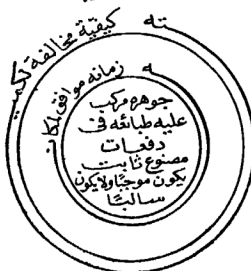 كيفية مخالفة لكميته
زمانه موافق لمكانه
جوهره مركب
عليه طبائعه فى
دفعات
مصنوع ثابت
يكون موجبًا ولا يكون
سالبًا